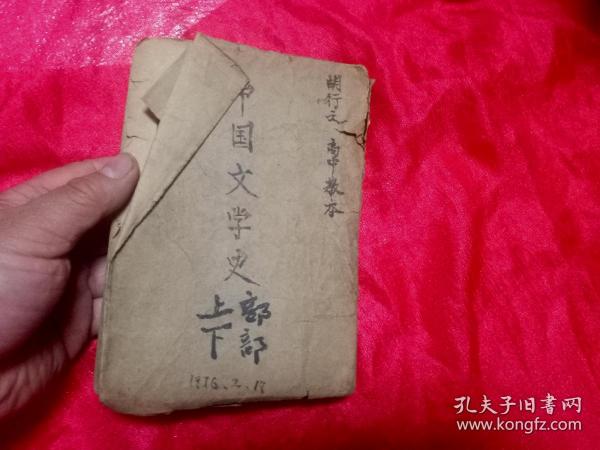 胡行之 高中教本
中国文学史
上部
下部
1936.2.18
孔夫子旧书网
www.kongfz.com